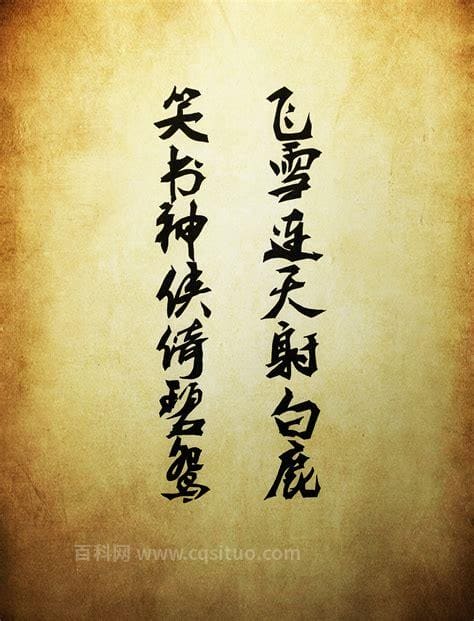 飞雪连天射白鹿
笑书神侠倚碧鸳
百科网 www.cqsituo.com